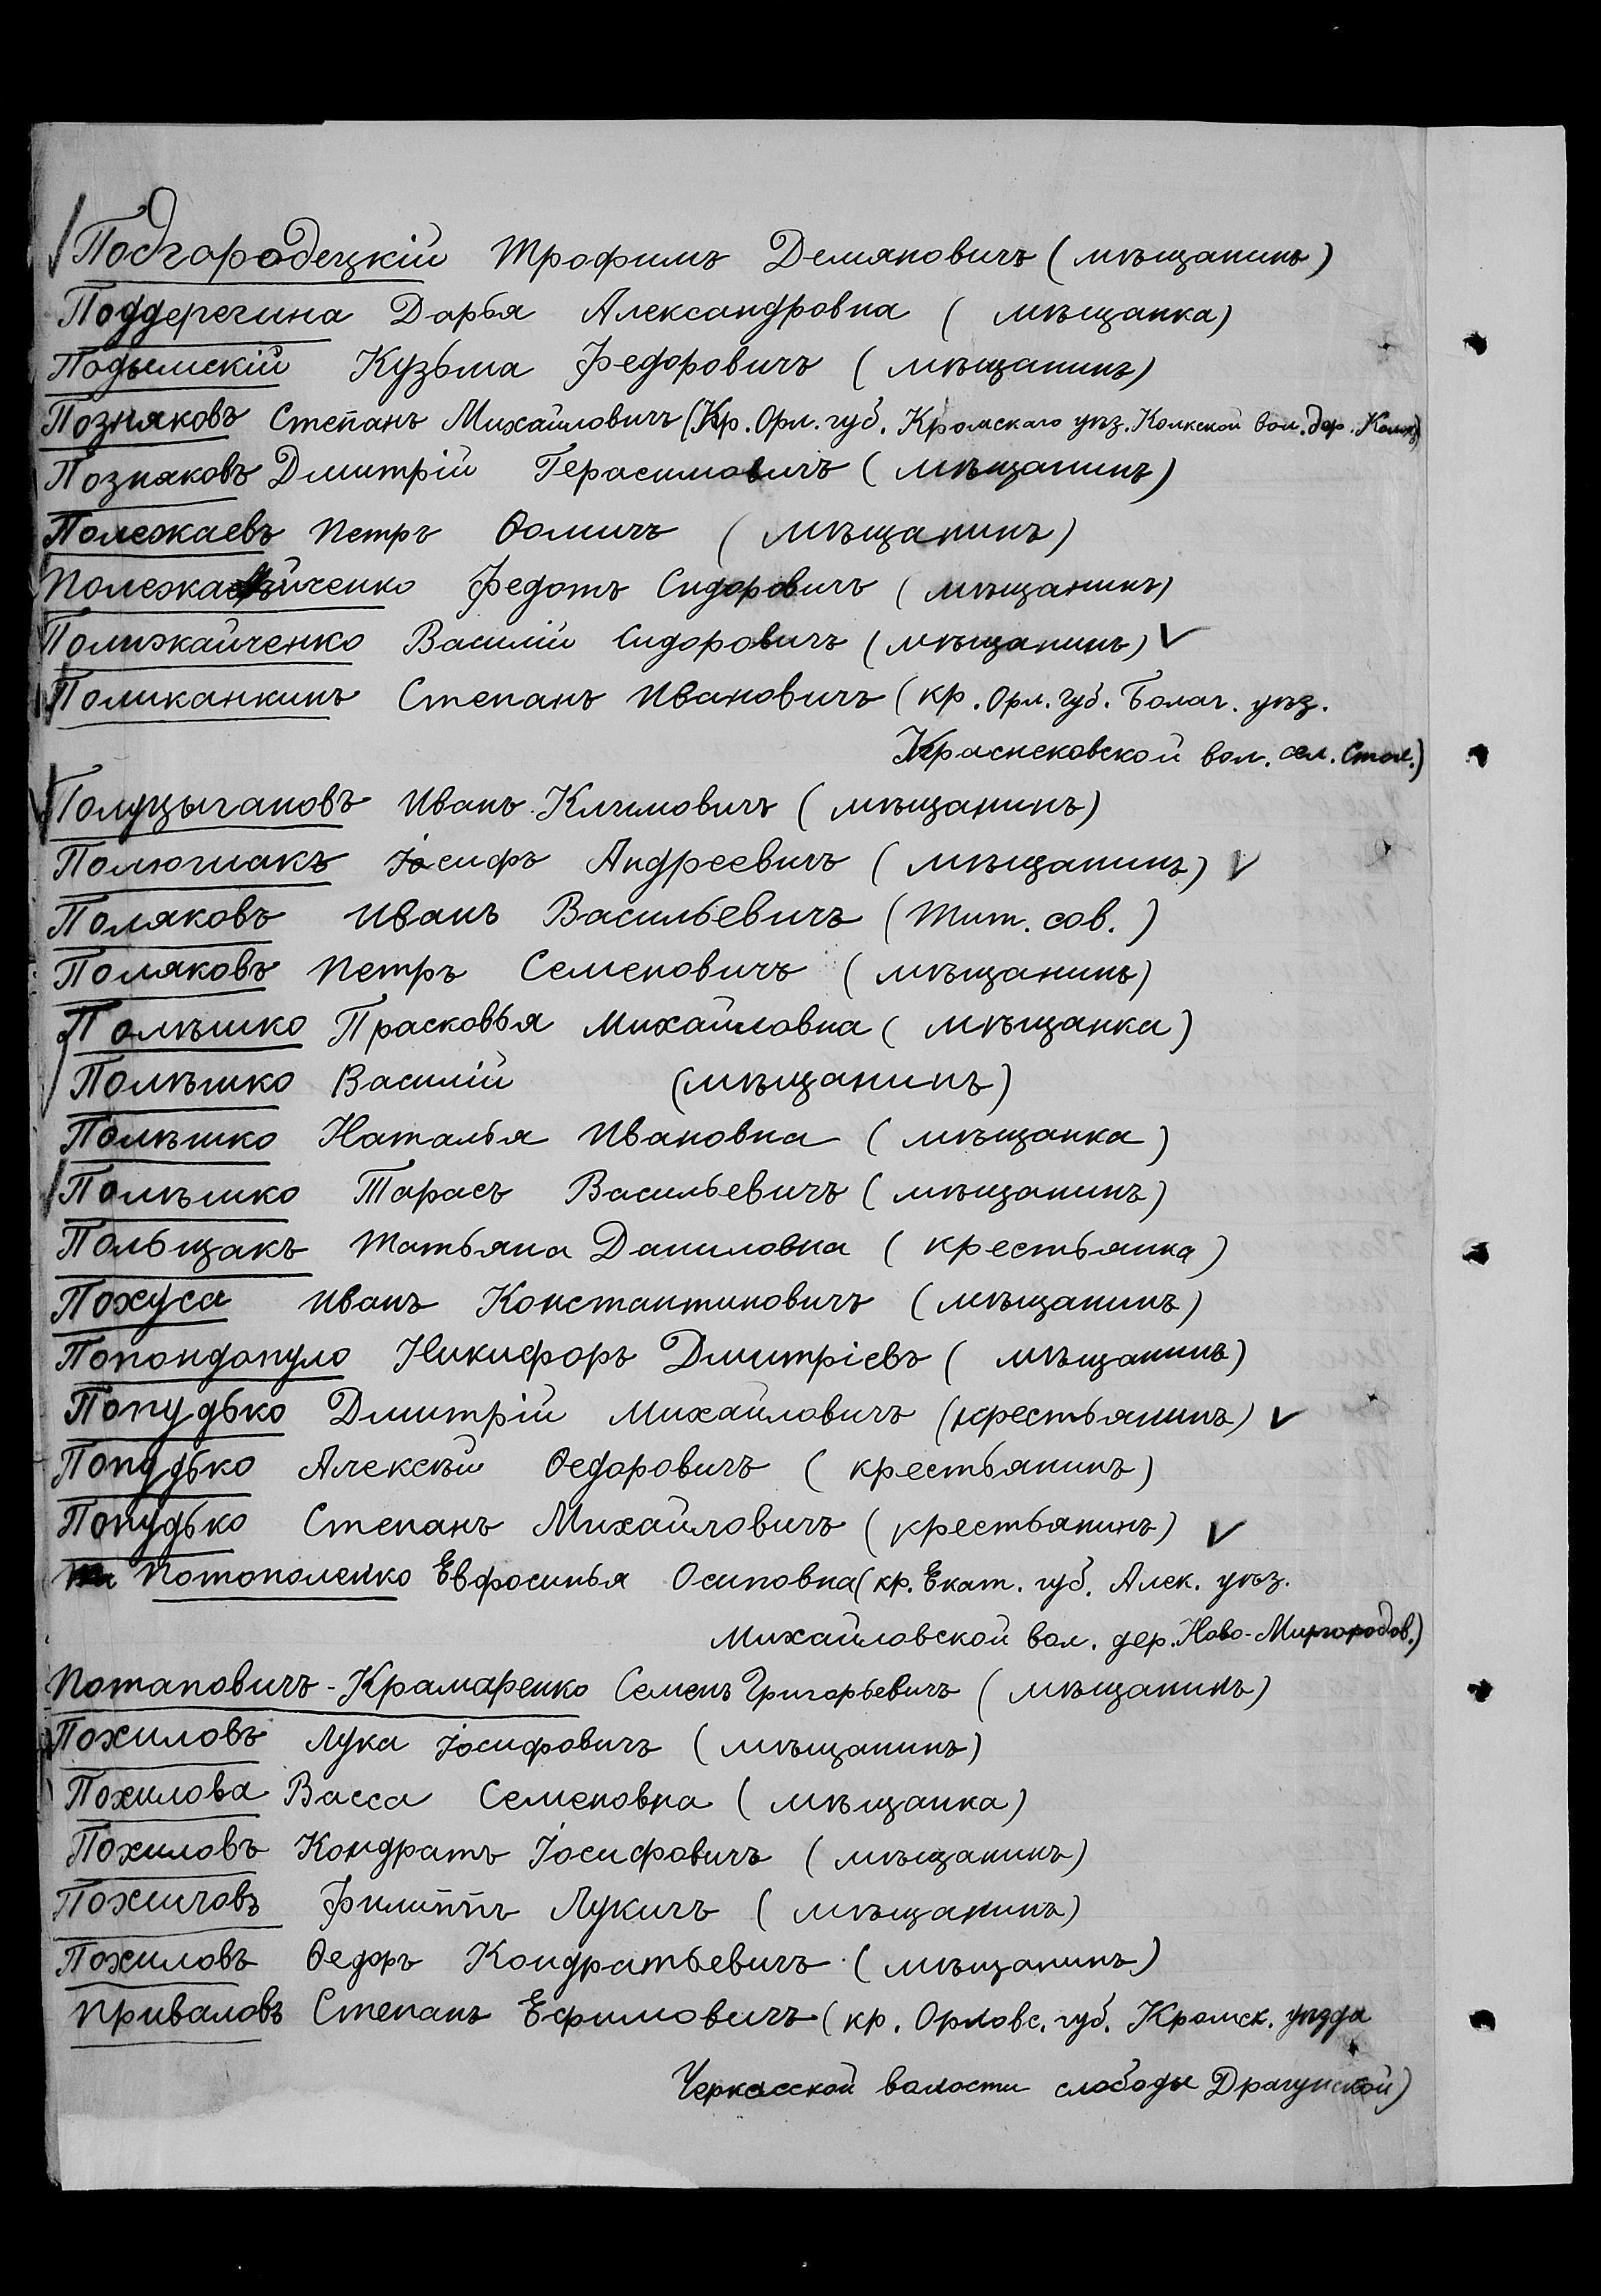 Подгородецкій Трофимъ Демяновичъ (мѣщанинъ)
Поддерегина Дарья Александровна (мѣщанка)
Подымскій Кузьма Федоровичъ (мѣщанинъ)
Позняковъ Степанъ Михайловичъ (Кр. Орл. губ. Кромскаго уѣз. Колкской вол. дер.
Позняковъ Дмитрій Герасимовичъ (мѣщанинъ)
Полежаевъ Петръ Ѳомичъ (мѣщанинъ)
Полежайченко Федотъ Сидоровичъ (мѣщанинъ)
Полижайченко Василій Сидоровичъ (мѣщанинъ)
Поликанкинъ Степанъ Ивановичъ (кр. Орл. губ. Болаг. уѣз.
Краснековской вол. сел. Стол.)
Полуцыгановъ Иванъ Климовичъ (мѣщанинъ)
Полючиакъ Іосифъ Андреевичъ (мѣщанинъ)
Поляковъ Иванъ Васильевичъ (Тит. сов.)
Поляковъ Петръ Семеновичъ (мѣщанинъ)
Полѣшко Прасковья Михайловна (мѣщанка)
Полѣшко Василій (мѣщанинъ)
Полѣшко Наталья Ивановна (мѣщанка)
Полѣшко Тарасъ Васильевичъ (мѣщанинъ)
Польщакъ Татьяна Даниловна (крестьянка)
Похуса Иванъ Константиновичъ (мѣщанинъ)
Попондопуло Никифоръ Дмитріевъ (мѣщанинъ)
Попудько Дмитрій Михайловичъ (крестьянинъ)
Попудько Алексѣй Ѳедоровичъ (крестьянинъ)
Попудько Степанъ Михайловичъ (крестьянинъ)
Потополенко Евфросинья Осиповна (кр. Екат. губ. Алек. уѣз.
Михайловской вол. дер. Ново-Миргородов.)
Потаповичъ-Крамаренко Семенъ Григорьевичъ (мѣщанинъ)
Похиловъ Лука Іосифовичъ (мѣщанинъ)
Похилова Васса Семеновна (мѣщанка)
Похиловъ Кондратъ Іосифовичъ (мѣщанинъ)
Похиловъ Филиппъ Лукичъ (мѣщанинъ)
Похиловъ Ѳедоръ Кондратьевичъ (мѣщанинъ)
Приваловъ Степанъ Ефимовичъ (кр. Орловс. губ. Кромск. уѣзда
Черкасской волости слободы Драгунской)